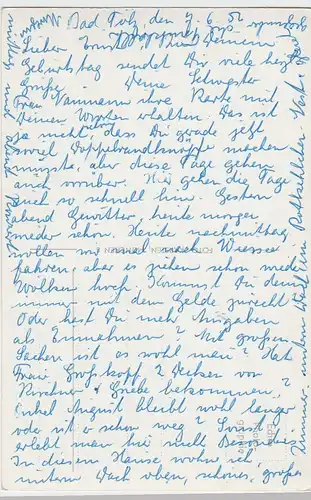 Bad Tölz, den 7. 6. 52
Lieber Ernst! Deinem
Geburtstag sendet Dir viele herzl.
Grüße Deine Schwester
Frau Naumann ihre Karte mit
Deinen Worten erhalten. Das ist
ja nicht schön, dass Du grade jetzt
soviel Doppelbrandknöpfe machen
musste, aber diese Tage gehen
auch vorüber. Hier gehen die Tage
auch so schnell hin. Gestern
abend Gewitter, heute morgen
wieder schön. Heute nachmittag
wollen wir mal nach Wiessee
fahren, aber es ziehen schon wieder
Wolken hoch. Kommst Du denn
immer mit dem Gelde zurecht?
Oder hast Du mehr Ausgaben
als Einnehmen? Mit großen
Sachen ist es wohl mau? Hat
Frau Großkopf 2 Decken von
Kirchner & Grebe bekommen?
Onkel August bleibt wohl länger
oder ist er schon weg? Sonst
erlebt man hier nicht Besonderes.
In diesem Hause wohne ich,
unterm Dach oben, schönes, großes
Zimmer.